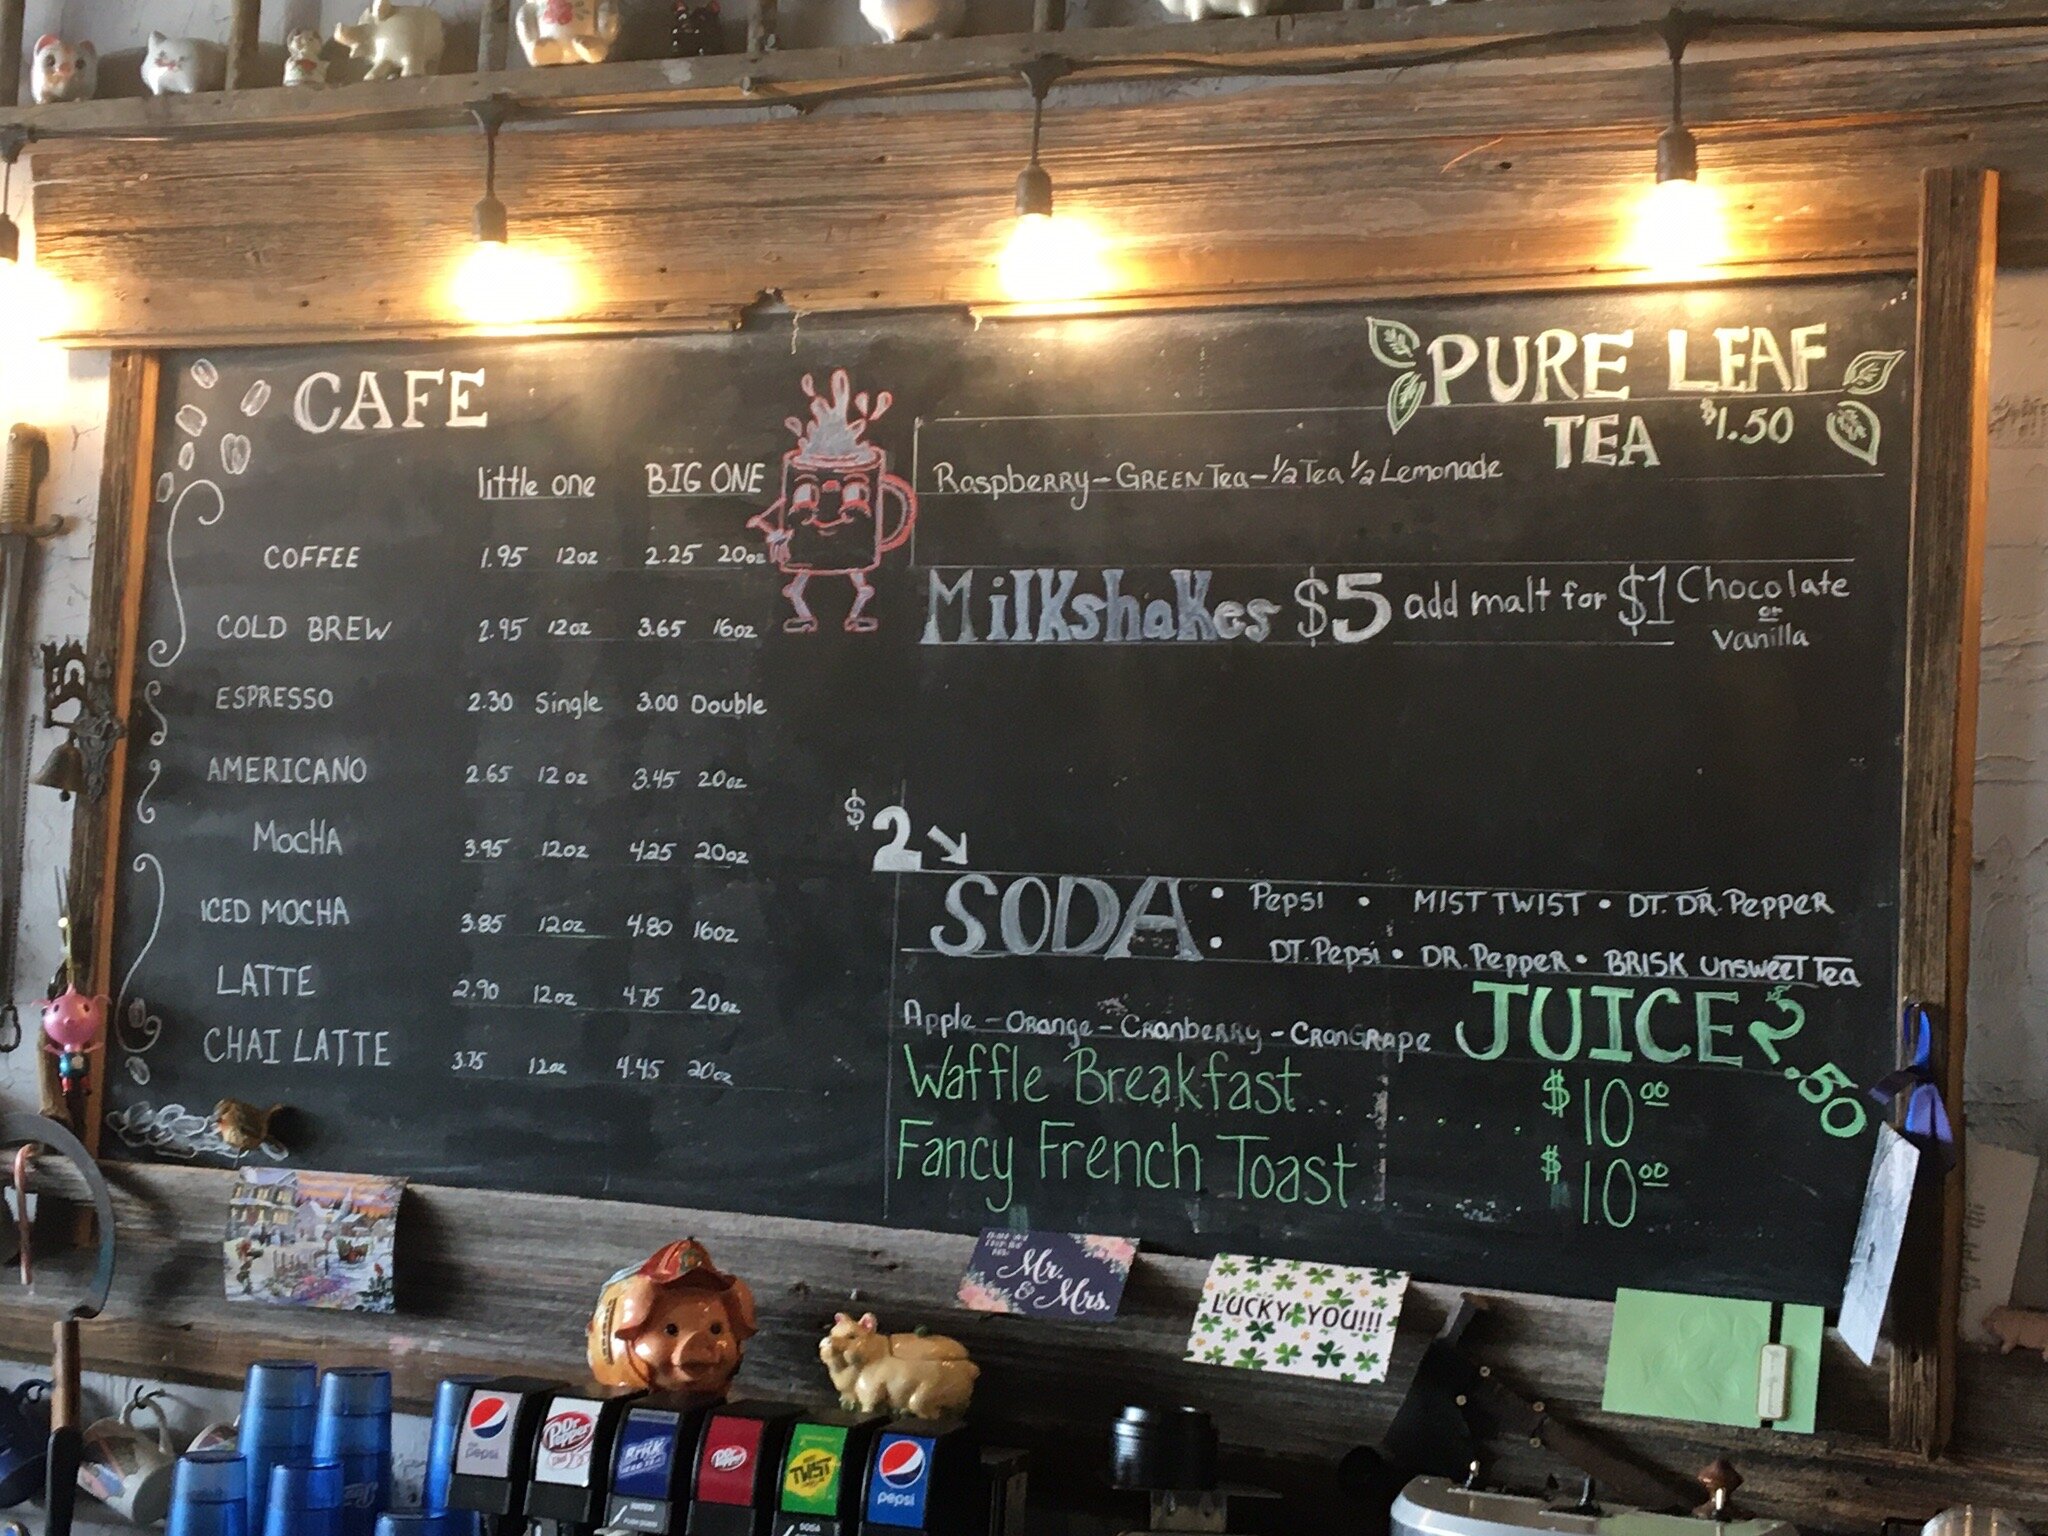 CAFE
little one BIG ONE
COFFEE 1.95 12oz 2.25 20oz
COLD BREW 2.95 12oz 3.65 16oz
ESPRESSO 2.30 Single 3.00 Double
AMERICANO 2.65 12oz 3.45 20oz
MocHA 3.95 12oz 4.25 20oz
ICED MOCHA 3.85 12oz 4.80 16oz
LATTE 2.90 12oz 4.75 20oz
CHAI LATTE 3.75 12oz 4.45 20oz
PURE LEAF
TEA $1.50
RaspbeRRy-GREEN Tea-½ Tea ½ Lemonade
Milkshakes $5 add malt for $1 Chocolate
or
Vanilla
$2
SODA: Pepsi • MIST TWIST • DT. DR. PePPER
DT. Pepsi • DR. PePPeR • BRISK UnsweeT Tea
Apple - Orange - CRanbeRRy - CRanGRApe JUICE $2.50
Waffle Breakfast........ $10.00
Fancy French Toast...... $10.00
Mr.
& Mrs.
LUCKY YOU!!!
pepsi
Dr Pepper
Brisk
Dr Pepper
TWIST
pepsi